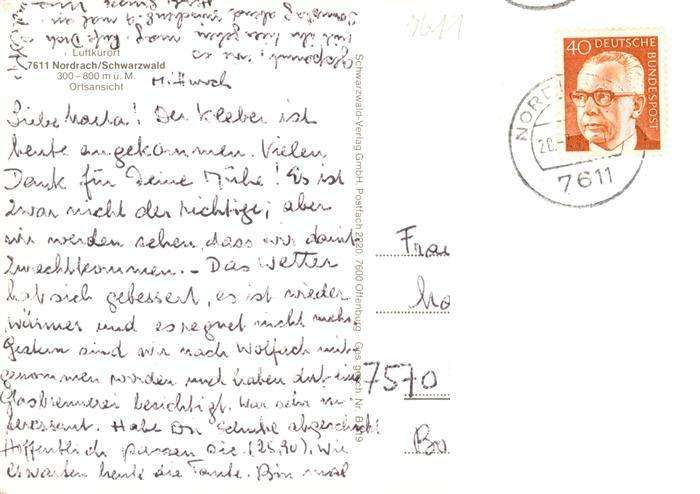 Luftkurort
7611 Nordrach/Schwarzwald
300 – 800 m ü. M.
Ortsansicht
Mittwoch
Liebe Marta! Der Kleber ist
heute angekommen. Vielen
Dank für Deine Mühe! Es ist
zwar nicht der richtige, aber
wir werden sehen, dass wir damit
zurechtkommen. – Das Wetter
hat sich gebessert, es ist wieder
wärmer und es regnet nicht mehr.
Gestern sind wir nach Wolfach mit-
genommen worden und haben dort eine
Glasbrennerei besichtigt. War sehr in-
teressant. Habe Dir Schuhe abgeschickt!
Hoffentlich passen sie. (25,90). Wir
erwarten heute die Tante. Bin mal
gespannt, wie es
ihr hier gefallen mag. Rufe Dich
Samstag abend zwischen 7 mal an
Schwarzwald-Verlag GmbH, Postfach 2220, 7600 Offenburg Ges. gesch. Nr.
7611
40 DEUTSCHE
BUNDESPOST
7611
Frau
7570